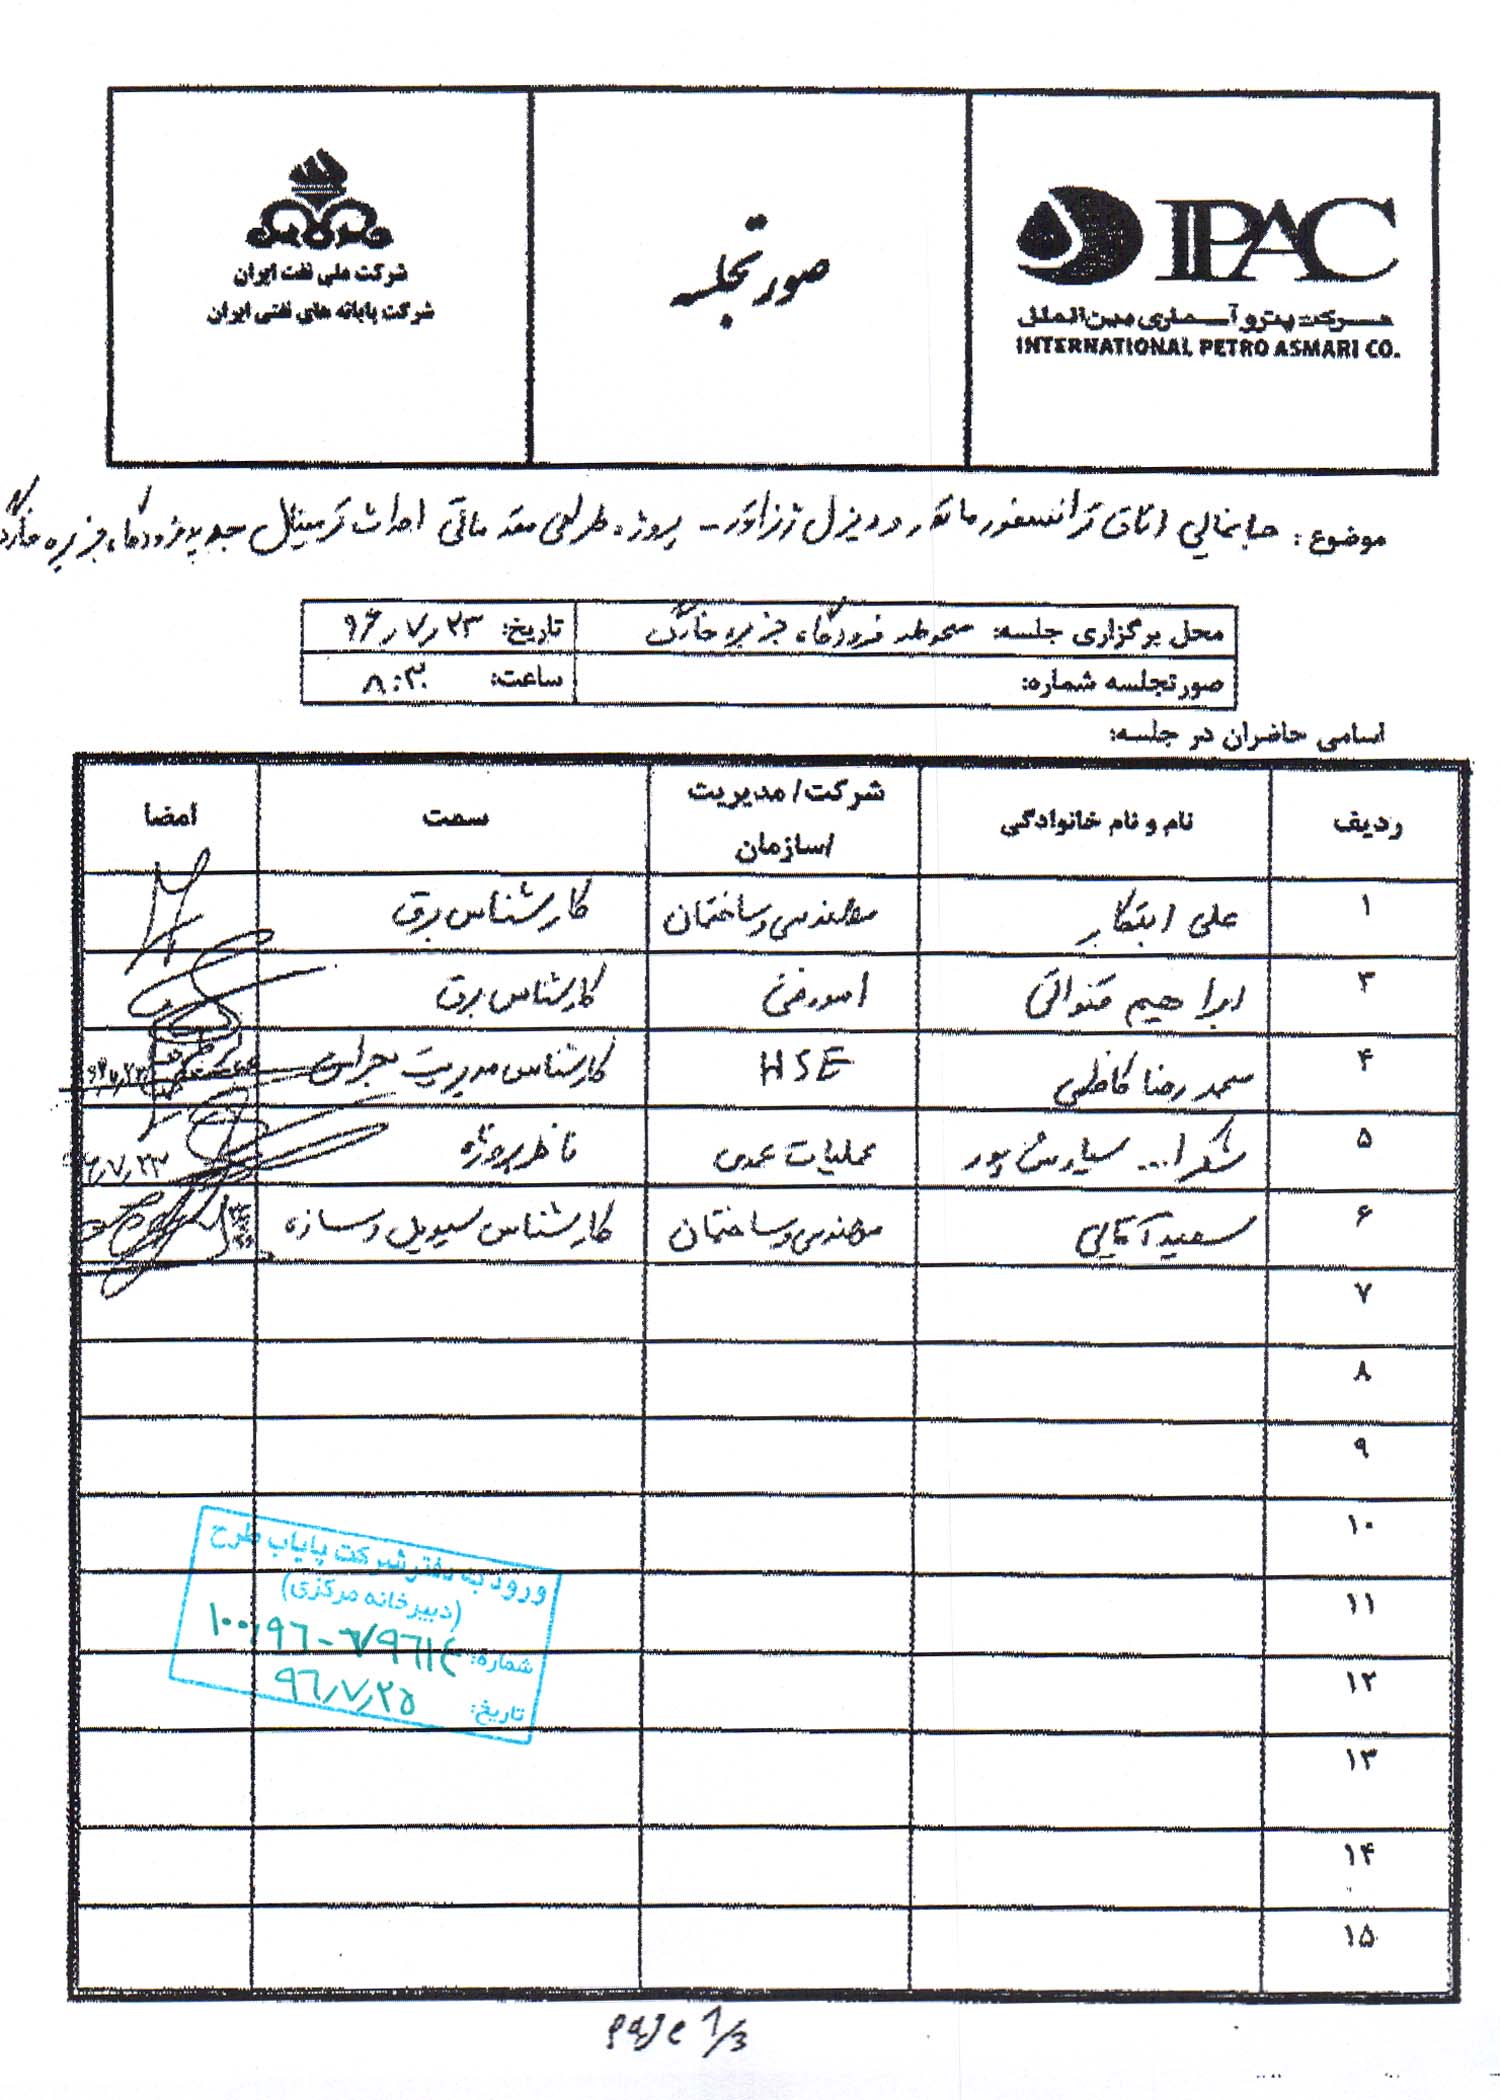 شرکت ملی نفت ایران
شرکت پایانه های نفتی ایران
صورتجلسه
IPAC
شرکت پترو آسماری بین الملل
INTERNATIONAL PETRO ASMARI CO.
موضوع: جانمائی اتاق ترانسفورماتور و دیزل ژنراتور - پروژه طراحی مقدماتی احداث ترمینال جدید فرودگاه جزیره خارگ
محل برگزاری جلسه: محوطه فرودگاه جزیره خارگ تاریخ: ۹۶٫۷٫۲۳
صورتجلسه شماره: ساعت: ۸:۳۰
اسامی حاضران در جلسه:
ردیف نام و نام خانوادگی شرکت/ مدیریت /سازمان سمت امضا
۱ علی ابتکار مهندسی و ساختمان کارشناس برق
۳ ابراهیم قنواتی امور فنی کارشناس برق
۴ محمدرضا کاظمی HSE کارشناس مدیریت بحران
۵ شکرا... سیاوش پور عملیات عمومی ناظر پروژه ۹۶٫۷٫۲۳
۶ سعید آقایی مهندسی و ساختمان کارشناس سیویل و سازه
۷
۸
۹
۱۰
۱۱
۱۲
۱۳
۱۴
۱۵
ورود به دفتر شرکت پایاب طرح
(دبیرخانه مرکزی)
شماره:
تاریخ: ۹۶٫۷٫۲۵
Page 1/3